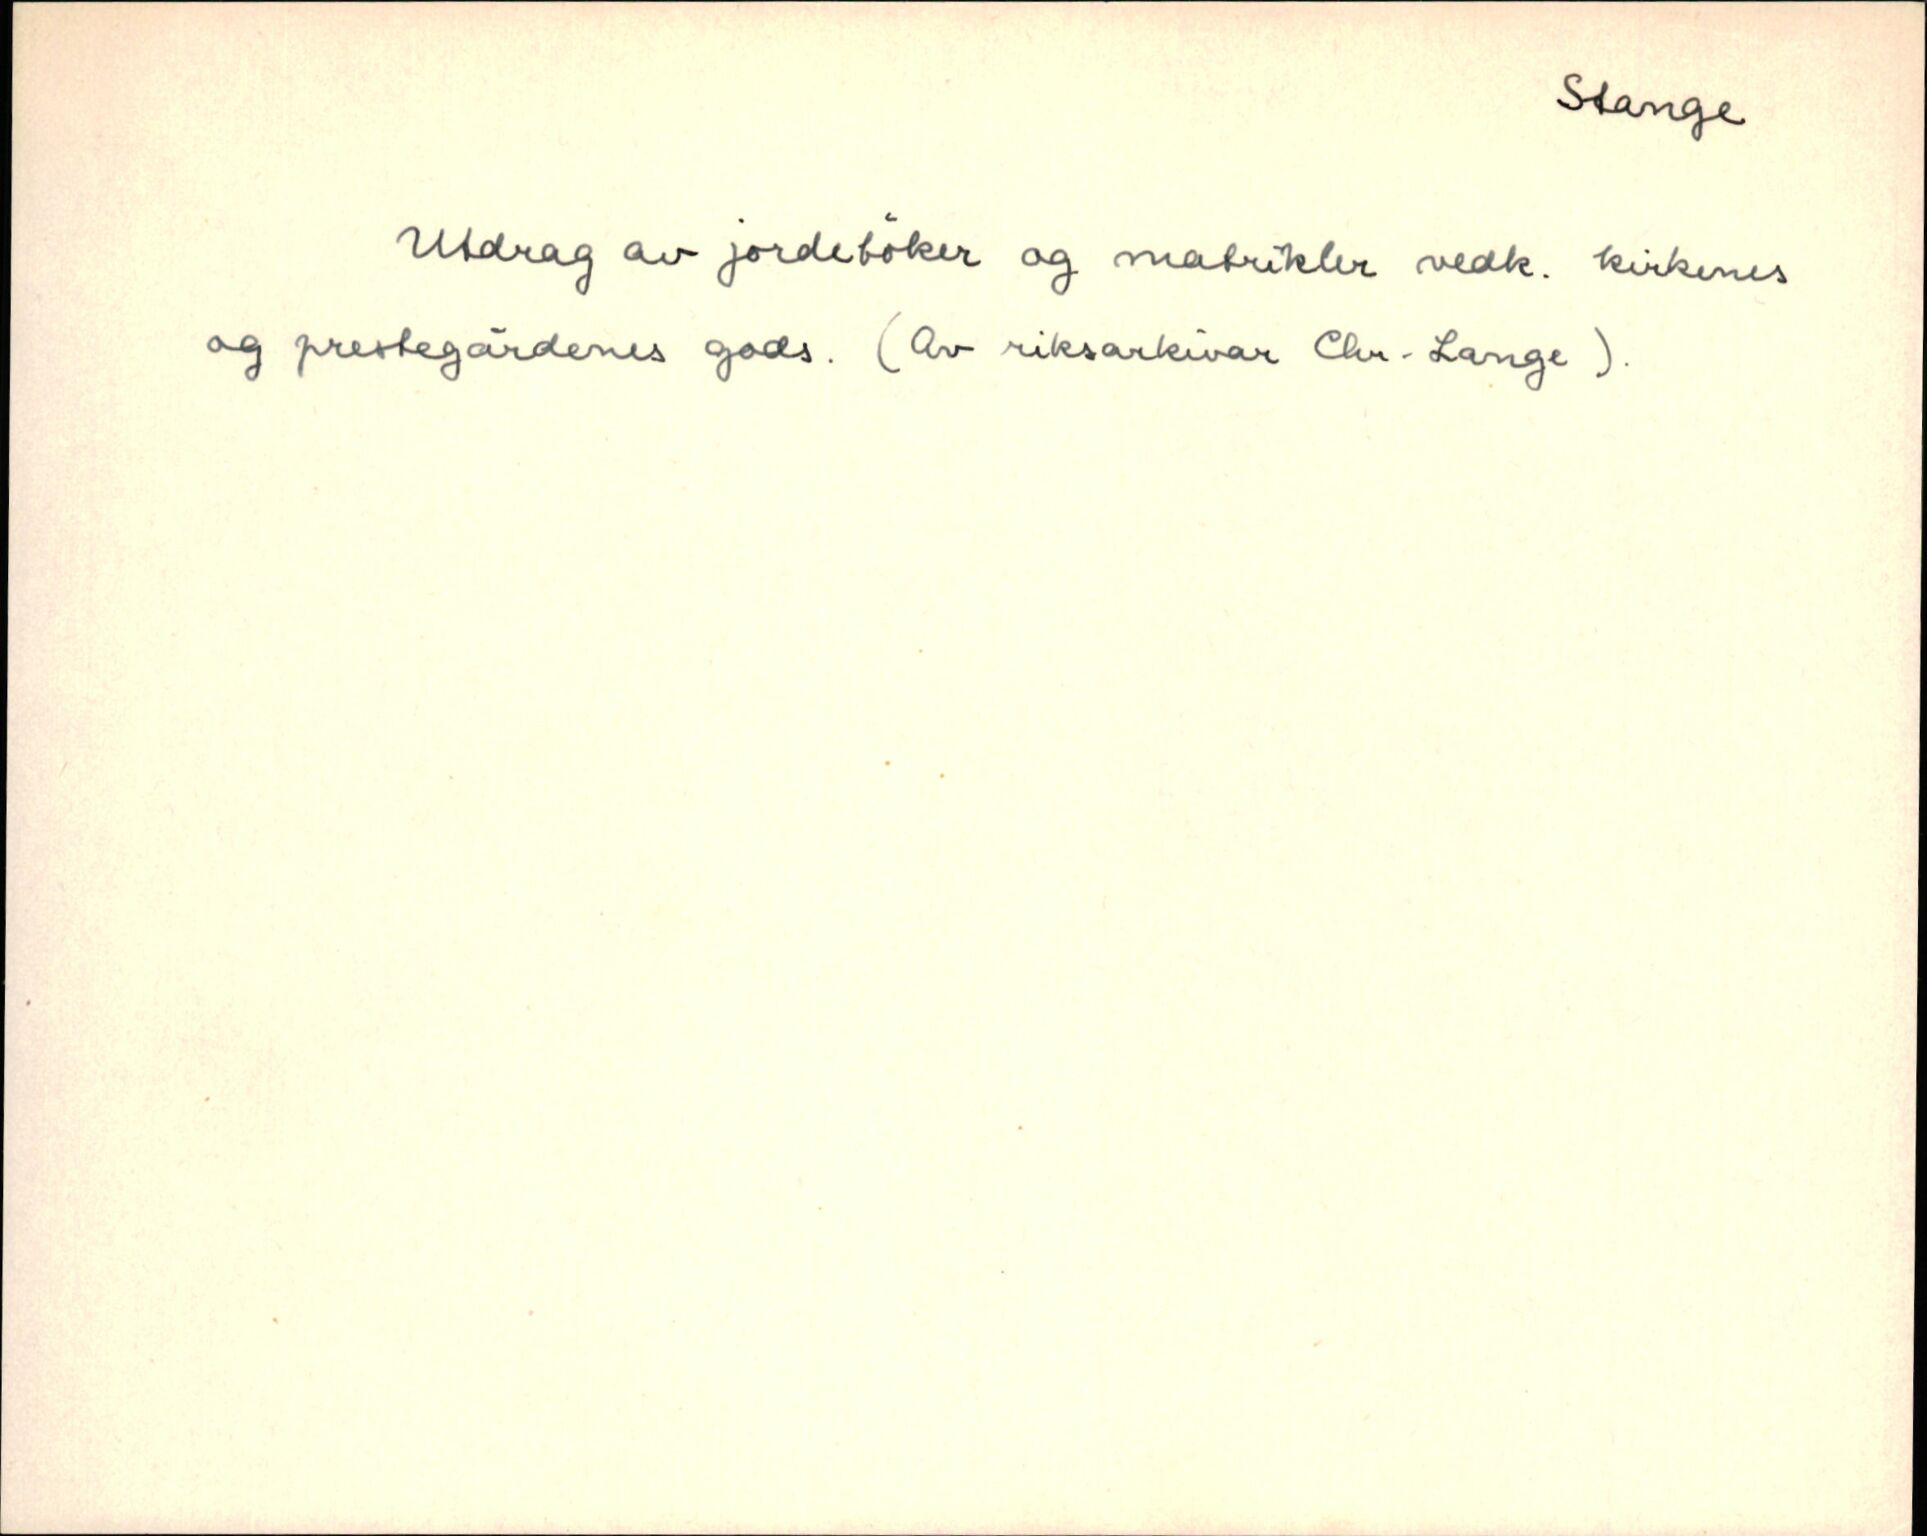 Stange
Utdrag av jordeböker og matrikler vedk. kirkenes
og prestegårdenes gods. (Av riksarkivar Chr. Lange).